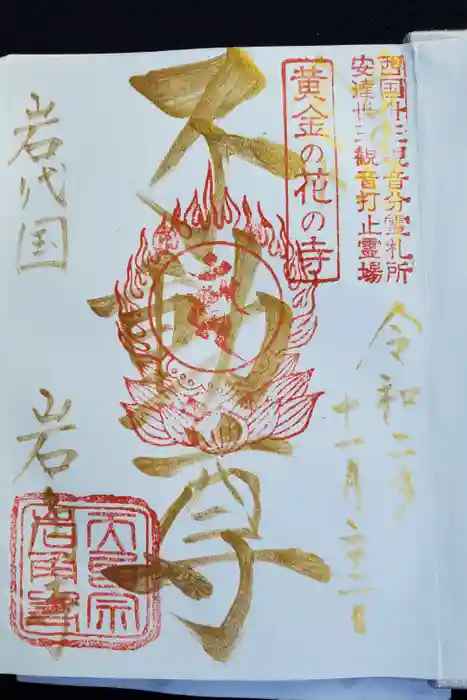 西国卅三観音分霊札所
安達卅三観音打止霊場
黄金の花の寺
令和二年
十一月二十二日
不動尊
岩代国
岩角寺
天台宗
岩角寺